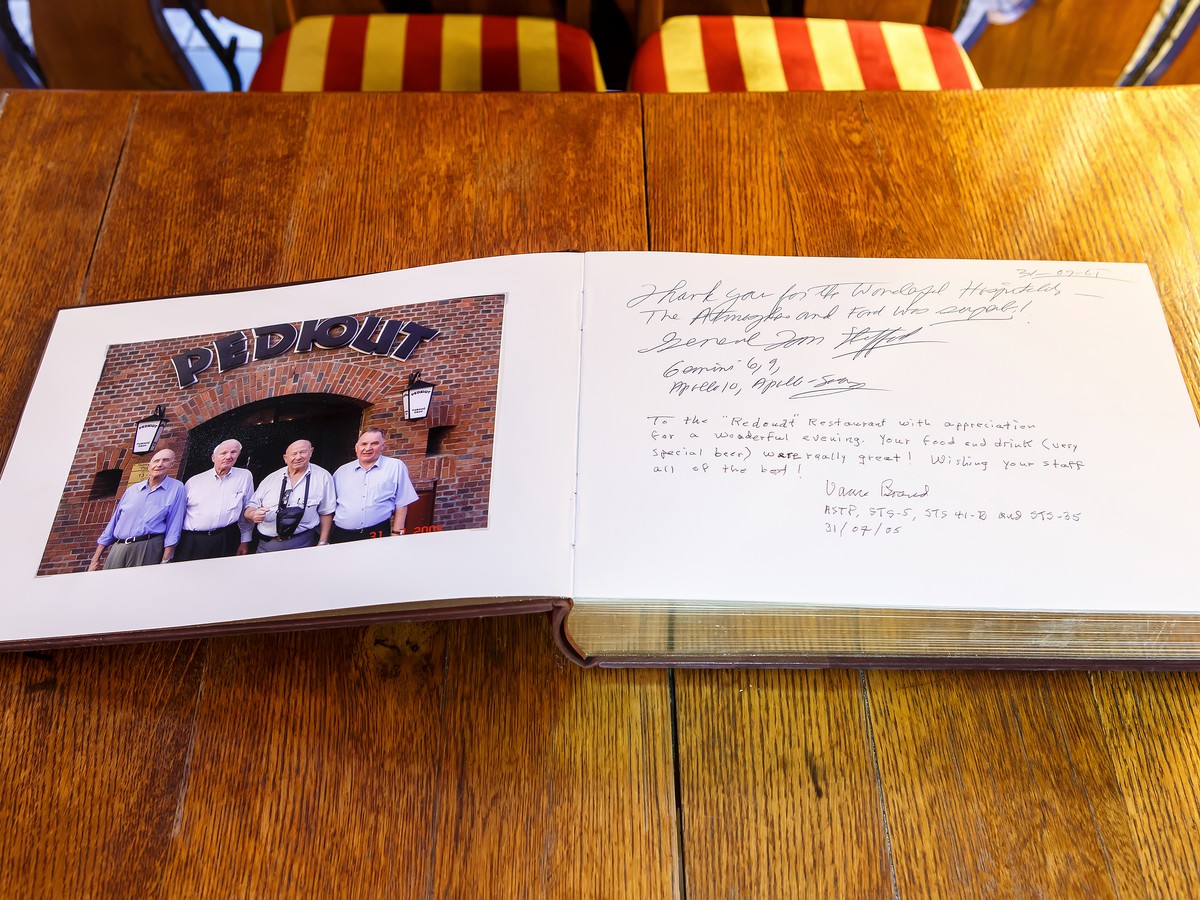 РЕДЮИТ
РЕДЮИТ
РЕДЮИТ
31 2005
31-07-05
Thank you for the Wonderful Hospitality —
The Atmosphere and Food was superb!
General Tom Stafford
Gemini 6, 9,
Apollo 10, Apollo-Soyuz
To the "Redoudt" Restaurant with appreciation
for a wonderful evening. Your food and drink (very
special beer) were really great! Wishing your staff
all of the best!
Vance Brand
ASTP, STS-5, STS 41-B and STS-35
31/07/05